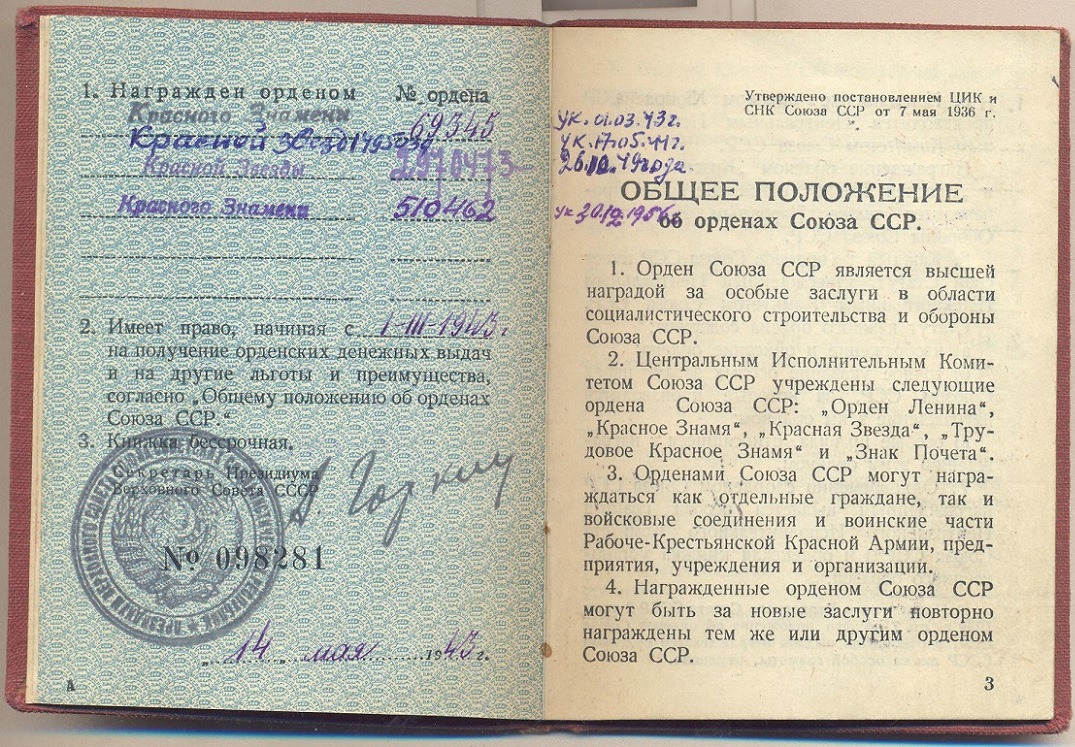 1. Награжден орденом № ордена
Красного Знамени 69345
Красной Звезды 495030
Красной Звезды 2970473
Красного Знамени 510462
2. Имеет право, начиная с 1-III-1943 г.
на получение орденских денежных выдач
и на другие льготы и преимущества,
согласно „Общему положению об орденах
Союза ССР.“
3. Книжка бессрочная.
Секретарь Президиума
Верховного Совета СССР
А Горкин
№ 098281
„14„ мая 1943 г.
А
Утверждено постановлением ЦИК и
СНК Союза ССР от 7 мая 1936 г.
Ук. 01.03.43г.
Ук. 17.05.44г.
26.10.49года
ОБЩЕЕ ПОЛОЖЕНИЕ
Ук 30.12.1956г.
об орденах Союза ССР.
1. Орден Союза ССР является высшей
наградой за особые заслуги в области
социалистического строительства и обороны
Союза ССР.
2. Центральным Исполнительным Коми-
тетом Союза ССР учреждены следующие
ордена Союза ССР: „Орден Ленина“,
„Красное Знамя“, „Красная Звезда“, „Тру-
довое Красное Знамя“ и „Знак Почета“.
3. Орденами Союза ССР могут награ-
ждаться как отдельные граждане, так и
войсковые соединения и воинские части
Рабоче-Крестьянской Красной Армии, пред-
приятия, учреждения и организации.
4. Награжденные орденом Союза ССР
могут быть за новые заслуги повторно
награждены тем же или другим орденом
Союза ССР.
3